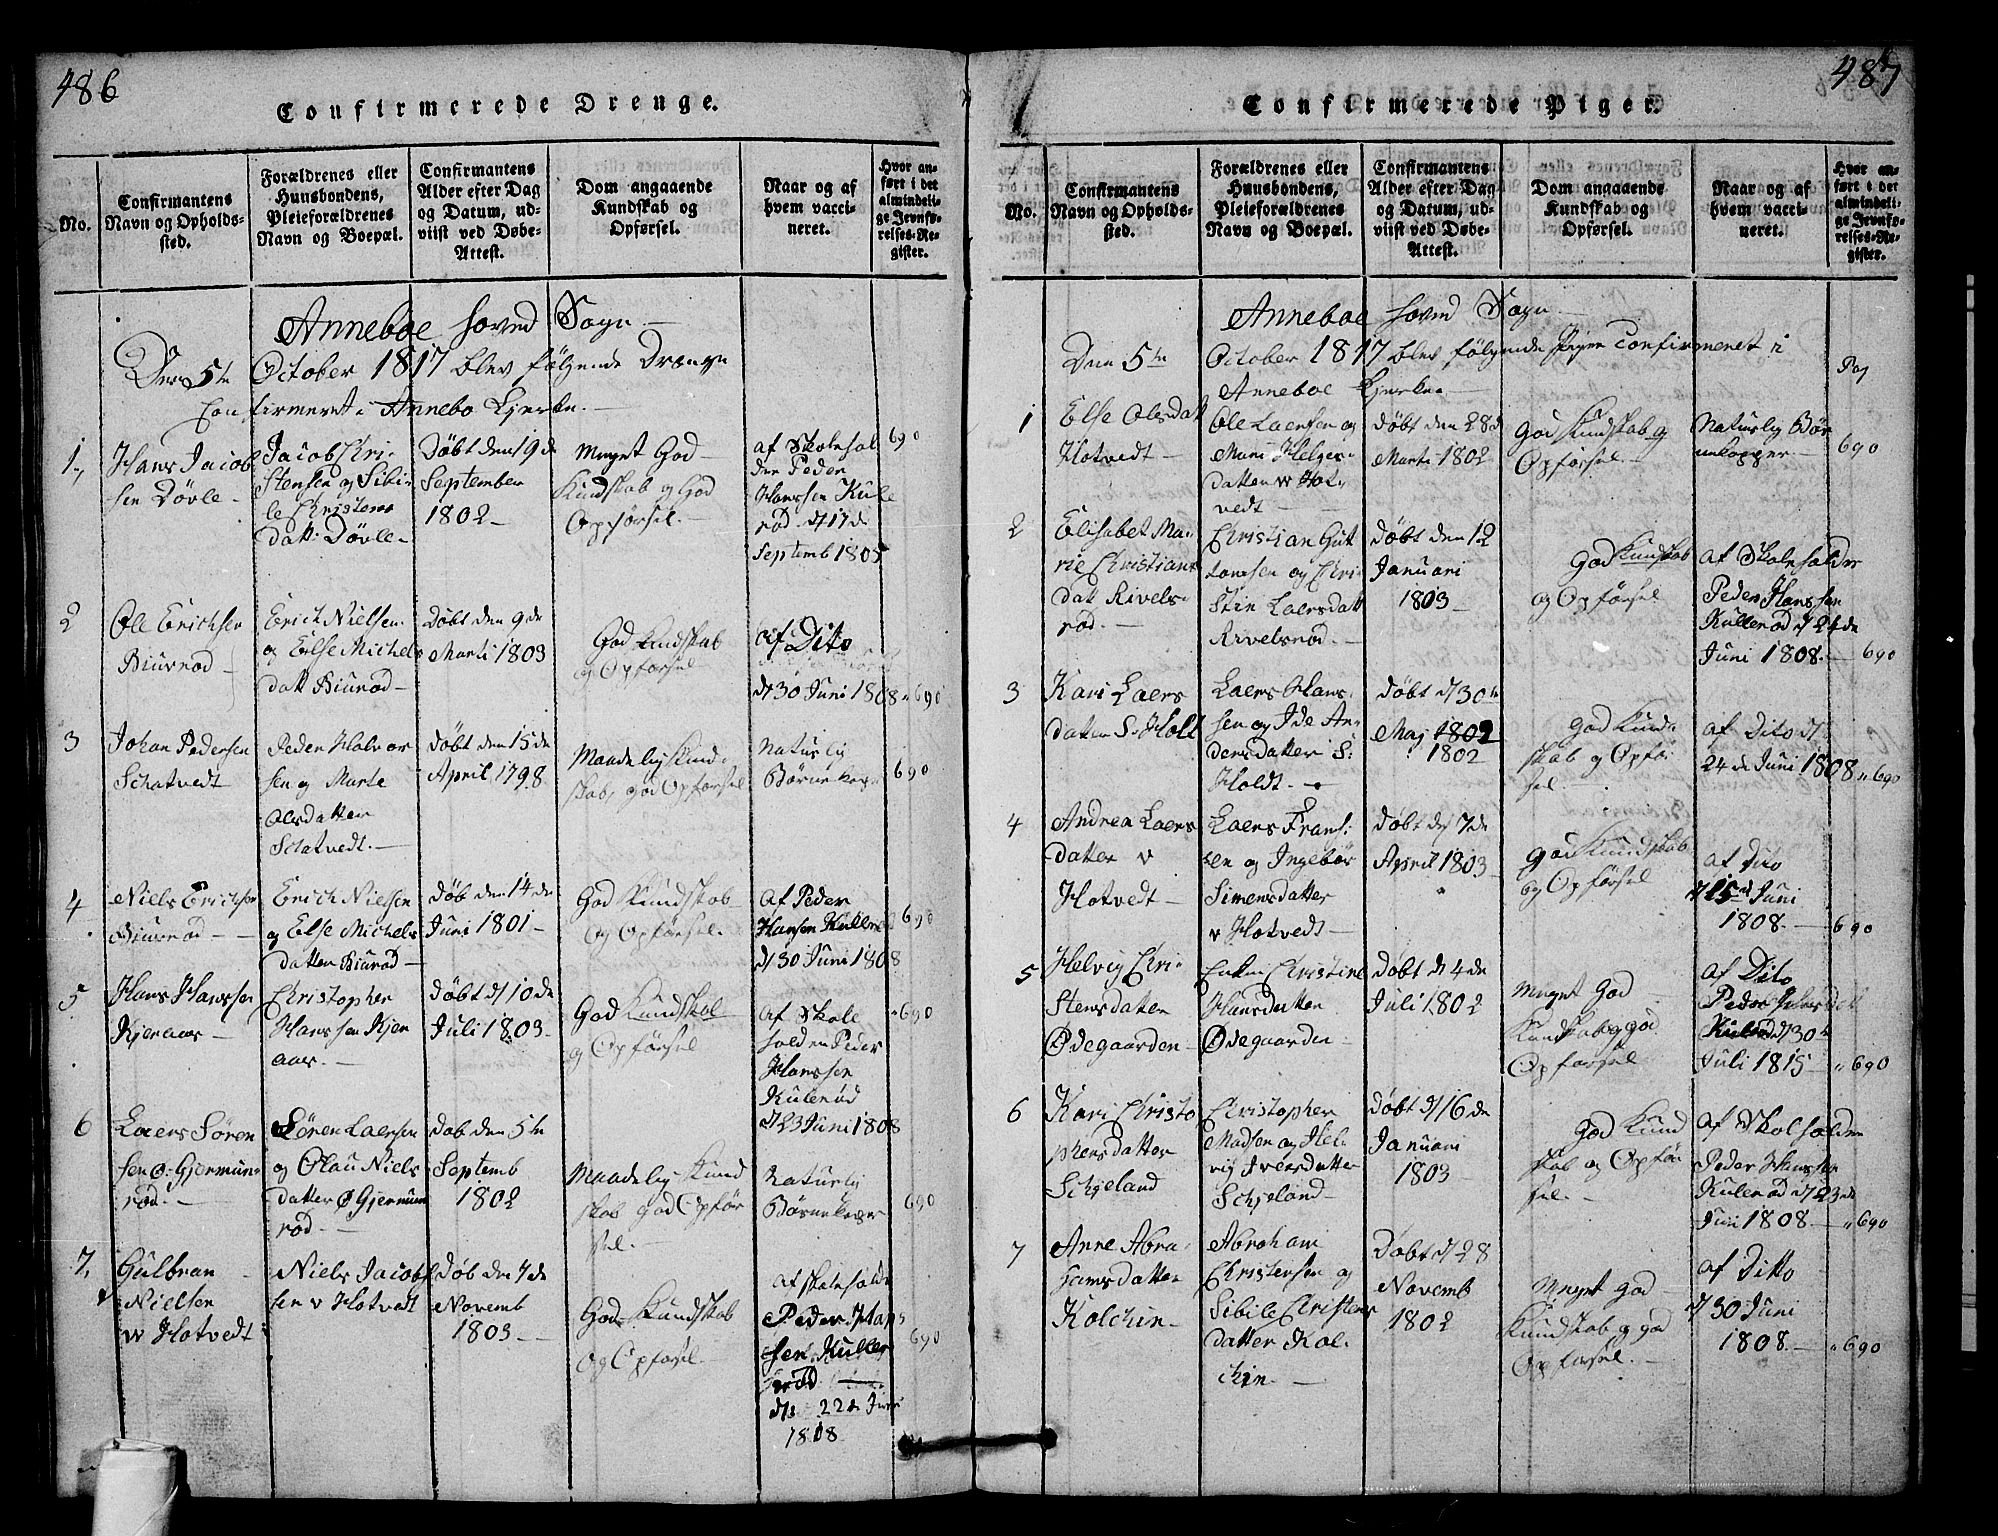 486
Confirmerede Drenge.
No.
Confirmantens
Navn og Opholds-
sted.
Forældrenes eller
Huusbondens,
Pleieforældrenes
Navn og Boepæl.
Confirmantens
Alder efter Dag
og Datum, ud-
viist ved Døbe-
Attest.
Dom angaaende
Kundskab og
Opførsel.
Naar og af
hvem vacci-
neret.
Hvor an-
ført i det
almindeli-
ge Jevnfø-
relses-Re-
gister.
Anneboe Hoved Sogn
Den 5te October 1817 blev følgende Drænge
Confirmeret i Annebo Kjerke.
1.
Hans Jacob
sen Døvle
Jacob Chri-
stensen og Sibi-
le Christens
datt: Døvle
Døbt den 19de
September
1802
Meget God
Kundskab og God
Opførsel.
af Skolehol
der Peder
Hanssen Kule
rød d/17de
Septemb 1805
690
2
Ole Erichsen
Biurrød
Erich Nielsen
og Else Michels
datt Biurød
Døbt den 9de
Marti 1803
God Kundskab
og Opførsel
af Dito
d/30 Juni 1808
690
3
Johan Pedersen
Schatvedt
Peder Halvor
sen og Marte
Olsdatter
Schatvedt.
Døbt den 15de
April 1798
Maadelig Kund-
skab, god Opførsel
Naturlig
Børnekop
690
4
Niels Erichsen
Biurrød
Erich Nielsen
og Else Michels
datter Biurød
Døb den 14de
Juni 1801
God Kundskab
og Opførsel.
af Peder
Hansen Kuller
d/30 Juni 1808
690
5
Hans Hanssen
Kjeraas
Christopher
Hanssen Kjer
aas
Døbt d/10de
Juli 1803
God Kundskab
og Opførsel
af Skole
holden Peder
Hanssen
Kulerød
d/23 Juni 1808
690
6
Laers Søren
sen Ø: Gjermun-
rød.
Søren Laersen
og Olau Niels
datter Ø Gjermun
rød.
Døb den 5te
Septemb
1802
Maadelig Kund
skab god Opfør
sel.
Naturlig
Børnekoper
690
7.
Gulbran
Nielsen
v Hotvedt
Niels Jacob
sen v Hotvedt
Døb den 7de
Novemb
1803
God Kundskab
og Opførsel.
af Skoleholder
Peder Han
sen Kuller
rød
d/ 22de Juni
1808
690
487
Confirmerede Piger.
No.
Confirmantens
Navn og Opholds-
sted.
Forældrenes eller
Huusbondens,
Pleieforældrenes
Navn og Boepæl.
Confirmantens
Alder efter Dag
og Datum, ud-
viist ved Døbe-
Attest.
Dom angaaende
Kundskab og
Opførsel.
Naar og af
hvem vacci-
neret.
Hvor an-
ført i det
almindeli-
ge Jevnfø-
relses-Re-
gister.
Anneboe Hoved Sogn
Den 5te October 1817 blev følgende Piger Confirmeret i
Anneboe Kjerke
Pag
1
Else Olesdatt
Hotvedt
Ole Laersen og
Mari Helges-
datter v Hot-
vedt
Døbt den 28d
Marti 1802
God Kundskab og
Opførsel.
Naturlig Bør
nekopper
690
2
Elisabet Ma-
rie Christians
datt Rivels-
rød.
Christian Gut
tormsen og Chri-
stin Laersdatt
Rivelsrød.
Døbt den 12
Januari
1803
God Kundskab
og Opførsel
af Skoleholder
Peder Hanssen
Kullerød d/24de
Juni 1808.
690
3
Kari Laers
datter S. Holt
Laers Hans-
sen og Ide An-
dersdatter S:
Holdt.
Døbt d/30te
Maj 1802
1802
God Kund-
skab og Opfør
sel.
af Dito d/
24de Juni 1808
690
4
Andrea Laers
datter v
Hotvedt
Laers Frans-
sen og Ingebør
Simensdatter
v Hotvedt
Døbt d/7de
April 1803
God Kundskab
og Opførsel.
af Dito
d/15d Juni
1808.
690
5
Helvig Chri-
stensdatter
Ødegaarden
Enken Christine
Hansdatter
Ødegaarden
Døbt d 4de
Juli 1802
Meget God
Kundskab og god
Opførsel
af Dito
Peder
Kulerød d/30te
Juli 1815
690
6
Kari Christo
phersdatter
Schjeland
Christopher
Madsen og Hel-
vig Iversdatter
Schjeland
Døbt d/16de
Januari
1803
God Kund
skab og Opfør
sel.
af Skolholder
Peder Hanssen
Kulerød d/23de
Juni 1808.
690
7
Anne Abra-
hamsdatter
Kolchin
Abraham
Christensen og
Sibile Christens
datter Kol-
chin.
Døbt d/28
Novemb
1802
Meget God
Kundskab og god
Opførsel.
af Ditto
d/30 Juni
1808.
690